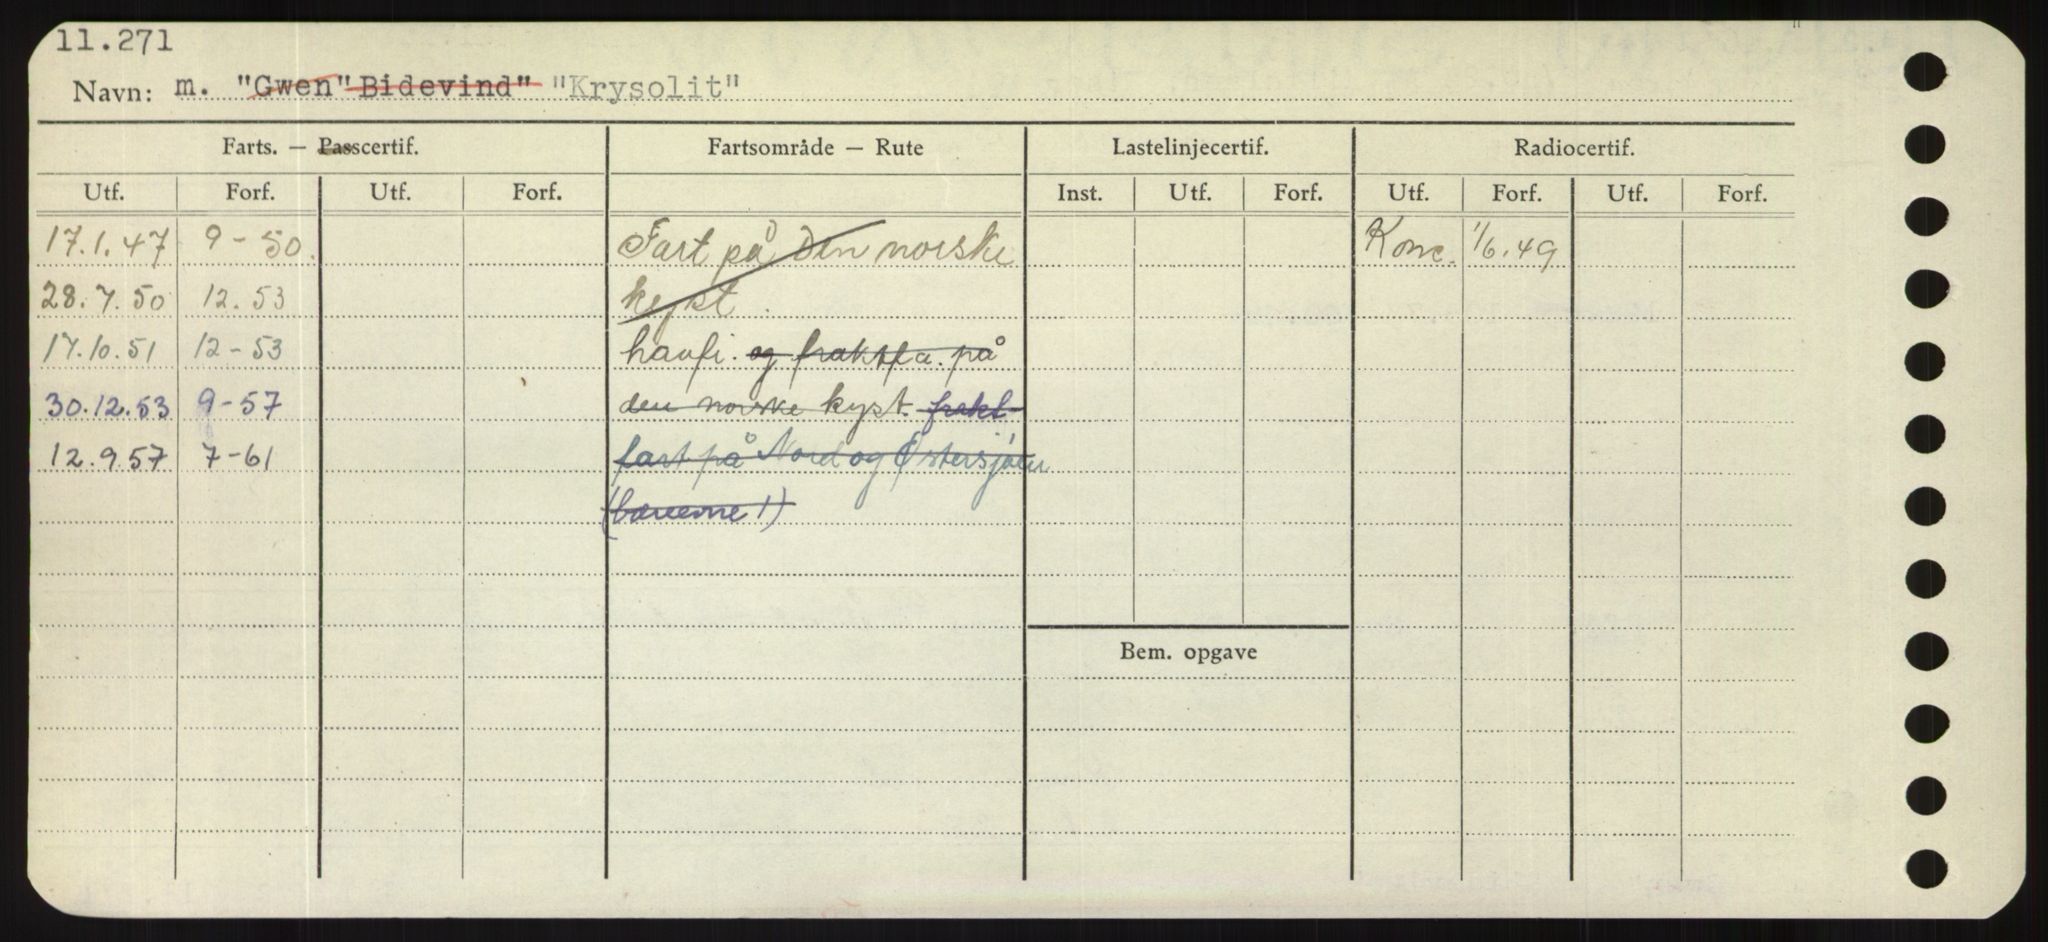 11.271
Navn: m. "Gwen" Bidevind" "Krysolit"
Farts. — Passcertif. Fartsområde — Rute Lastelinjecertif. Radiocertif.
Utf. Forf. Utf. Forf. Inst. Utf. Forf. Utf. Forf. Utf. Forf.
17.1.47 9-50. Fart på den norske Konc. 1/6.49
28.7.50 12.53 kyst.
17.10.51 12-53 havfi. og fraktfa. på
30.12.53 9-57 den norske kyst. frakt-
12.9.57 7-61 fart på Nord og Østersjøen
(bæreevne !)
Bem. opgave